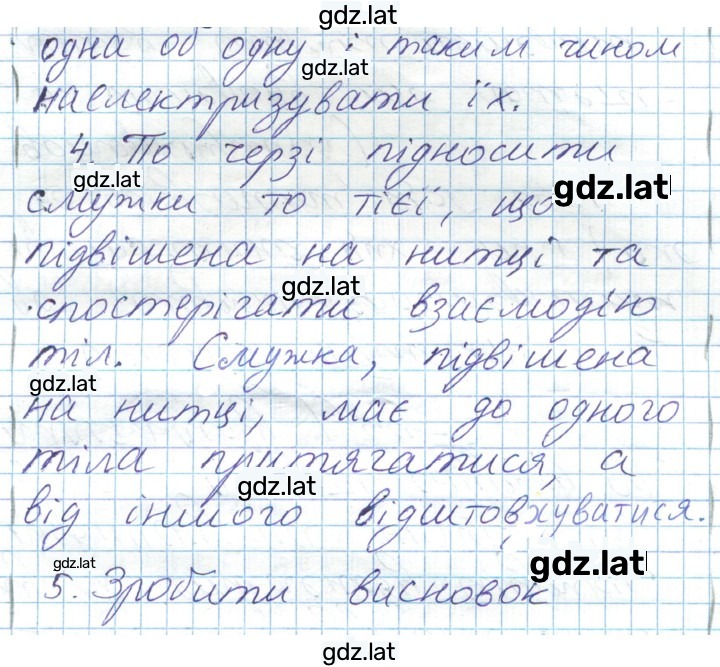 gdz.lat
одна об одну і таким чином
gdz.lat
наелектризувати їх.
4. По черзі підносити
gdz.lat
gdz.lat
смужки то тієї, що
підвішена на нитці та
gdz.lat
спостерігати взаємодію
тіл. Смужка, підвішена
gdz.lat
на нитці, має до одного
тіла притягатися, а
gdz.lat
від іншого відштовхуватися.
gdz.lat
gdz.lat
5. Зробити висновок
gdz.lat